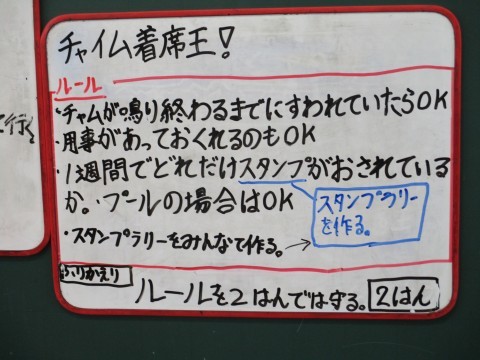 チャイム着席王!
ルール
・チャムが鳴り終わるまでにすわれていたらOK
・用事があっておくれるのもOK
・1週間でどれだけスタンプがおされている
か。・プールの場合はOK
スタンプラリー
を作る。
・スタンプラリーをみんなで作る。→
ふりかえり
ルールを2はんでは守る。 2はん
行く